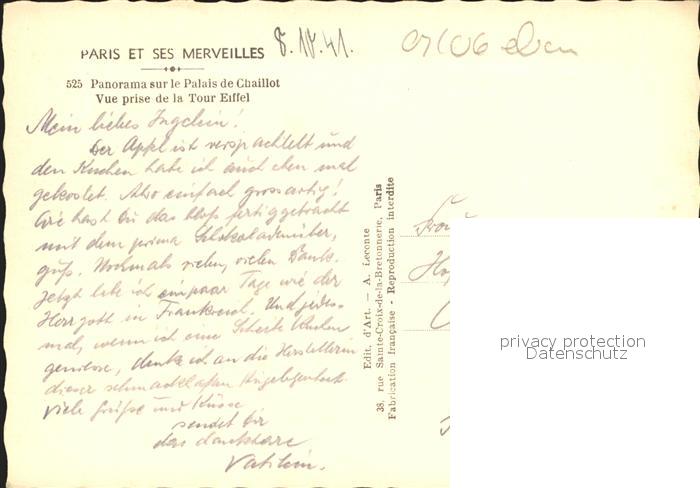 PARIS ET SES MERVEILLES 8.10.41.
525 Panorama sur le Palais de Chaillot
Vue prise de la Tour Eiffel
Mein liebes Ingelein!
Der Apfel ist verspachtelt und
den Kuchen habe ich auch eben mal
gekostet. Also einfach grossartig!
Wie hast Du das bloß fertiggebracht
mit dem prima Schokoladenüber,
guß. Nochmals vielen, vielen Dank.
Jetzt lebe ich ein paar Tage wie der
Herrgott in Frankreich. Und jedes-
mal, wenn ich eine Scheibe Kuchen
geniesse, denke ich an die Herstellerin
dieser schmackhaften
Viele Grüße und Küsse
sendet Dir
das dankbare
Vatilein.
Edit. d'Art. — A. Leconte
38, rue Sainte-Croix-de-la-Bretonnerie, Paris
Fabrication française - Reproduction interdite
Frau
privacy protection
Datenschutz